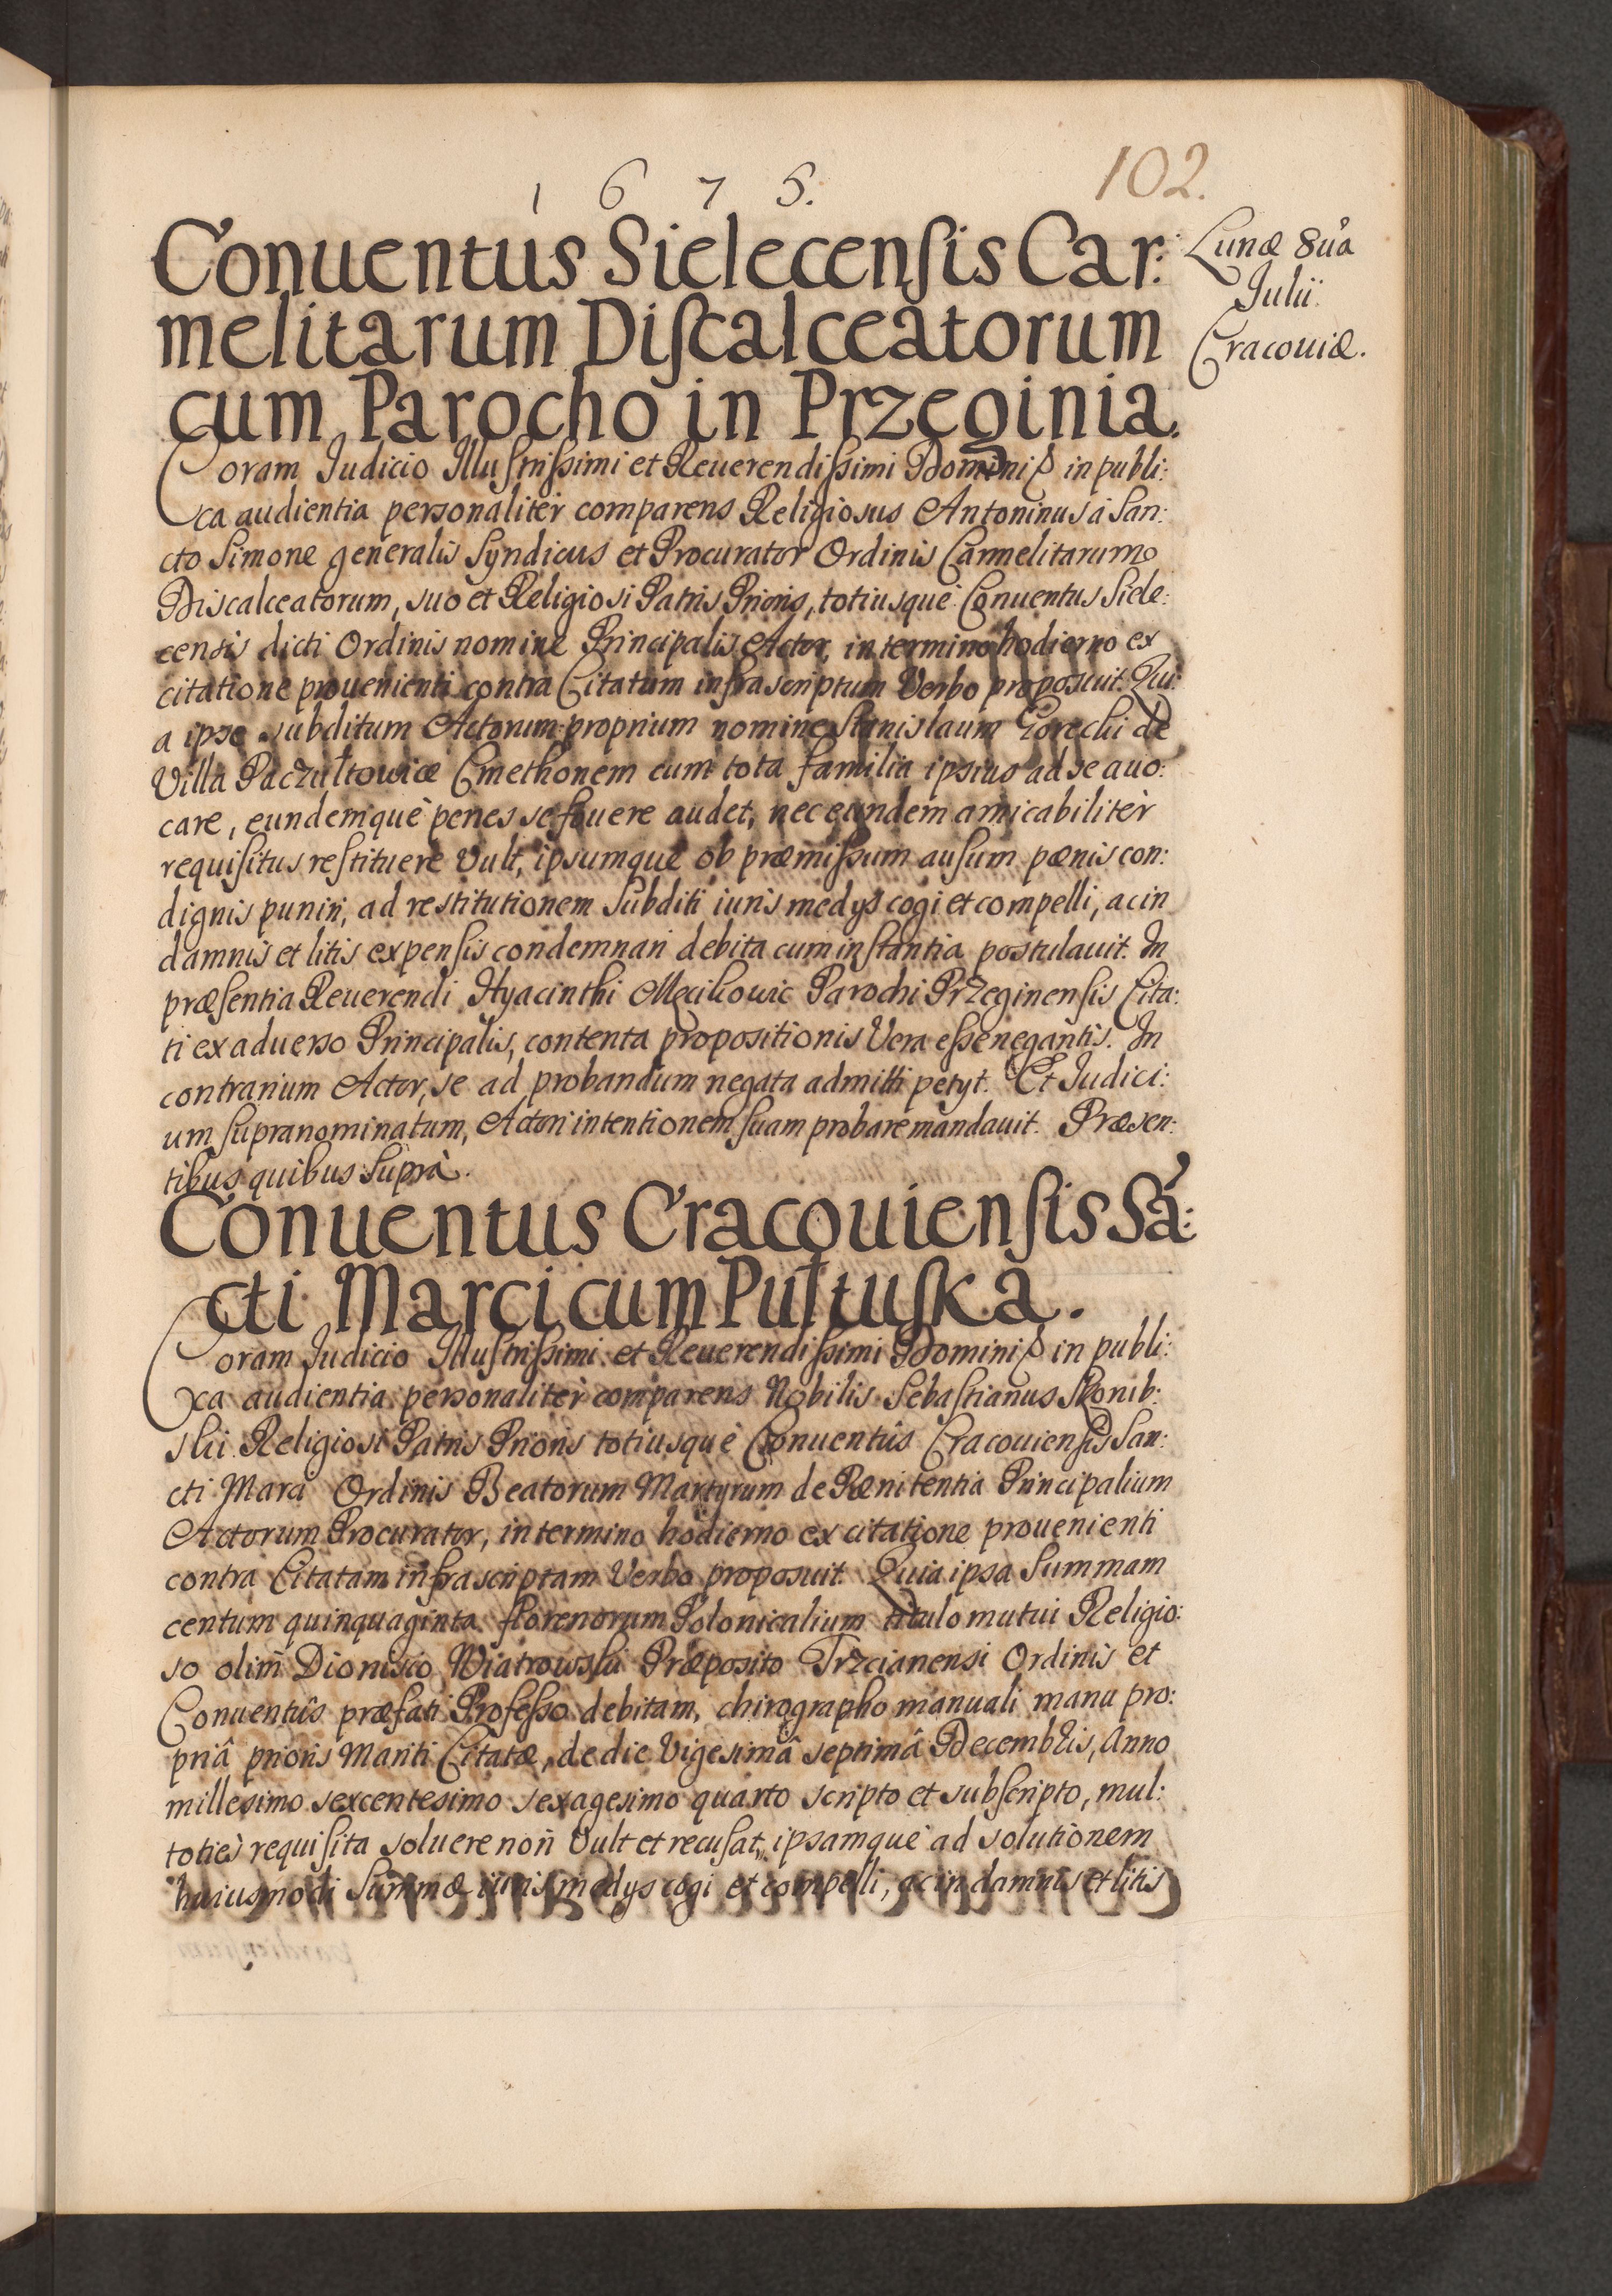 1 6 7 5.
102.
Conuentus Sielecensis Car:
melitarum Discalceatorum
cum Parocho in Przeginia.
Lunæ 8ua
Julii.
Cracouiæ.
Coram Judicio Illustrissimi et Reuerendissimi Domini in publi:
ca audientia personalitèr comparens Religiosus Antoninus à San:
cto Simone generalis Syndicus et Procurator Ordinis Carmelitarum
Discalceatorum, suo et Religiosi Patris Prioris, totiusquè Conuentus Siele:
censis dicti Ordinis nomine Principalis Actor, in termino hodierno ex
citatione prouenienti contra Citatum infrascriptum Verbo proposuit. Qui:
a ipse subditum Actorum proprium nomine Stanislaum Gorecki de
Villa Paczułtowice Cmethonem cum tota familia ipsius ad se auo:
care, eundemquè penes se fouere audet, nec eundem amicabilitèr
requisitus restituere Vult, ipsumquè ob præmissum ausum pænis con:
dignis puniri, ad restitutionem Subditi iuris medys cogi et compelli, ac in
damnis et litis expensis condemnari debita cum instantia postulauit. In
præsentia Reuerendi Hyacinthi Parochi Przeginensis Cita:
ti ex aduerso Principalis, contenta propositionis Vera esse negantis. In
contrarium Actor, se ad probandum negata admitti petyt. Et Judici:
um supranominatum, Actori intentionem suam probare mandauit. Præsen:
tibus quibus Suprà.
Conuentus Cracouiensis Sã:
cti Marci cum Pułtuska.
Coram Judicio Illustrissimi et Reuerendissimi Domini in publi:
ca audientia personalitèr comparens Nobilis Sebastianus
ski Religiosi Patris Prioris totiusquè Conuentûs Cracouiensis San:
cti Marci Ordinis Beatorum Martyrum de Pænitentia Principalium
Actorum Procurator, in termino hodierno ex citatione prouenienti
contra Citatam infrascriptam Verbo proposuit. Quia ipsa Summam
centum quinquaginta florenorum Polonicalium titulo mutui Religio:
so olim Dionisio Wiatrowski Præposito Trzcianensi Ordinis et
Conuentûs præfati Professo debitam, chirographo manuali manu pro:
priâ prioris Mariti Citatæ, de die Vigesimâ septimâ Decembris, Anno
millesimo sexcentesimo sexagesimo quarto scripto et subscripto, mul:
toties requisita soluere non Vult et recusat, ipsamquè ad solutionem
huiusmodi Summæ iuris medys cogi et compelli, ac in damnis et litis